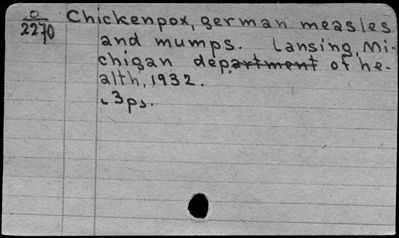 O Chickenpox, german measles
2270 and mumps. Lansing, Mi-
chigan department of he-
alth, 1932.
3ps.